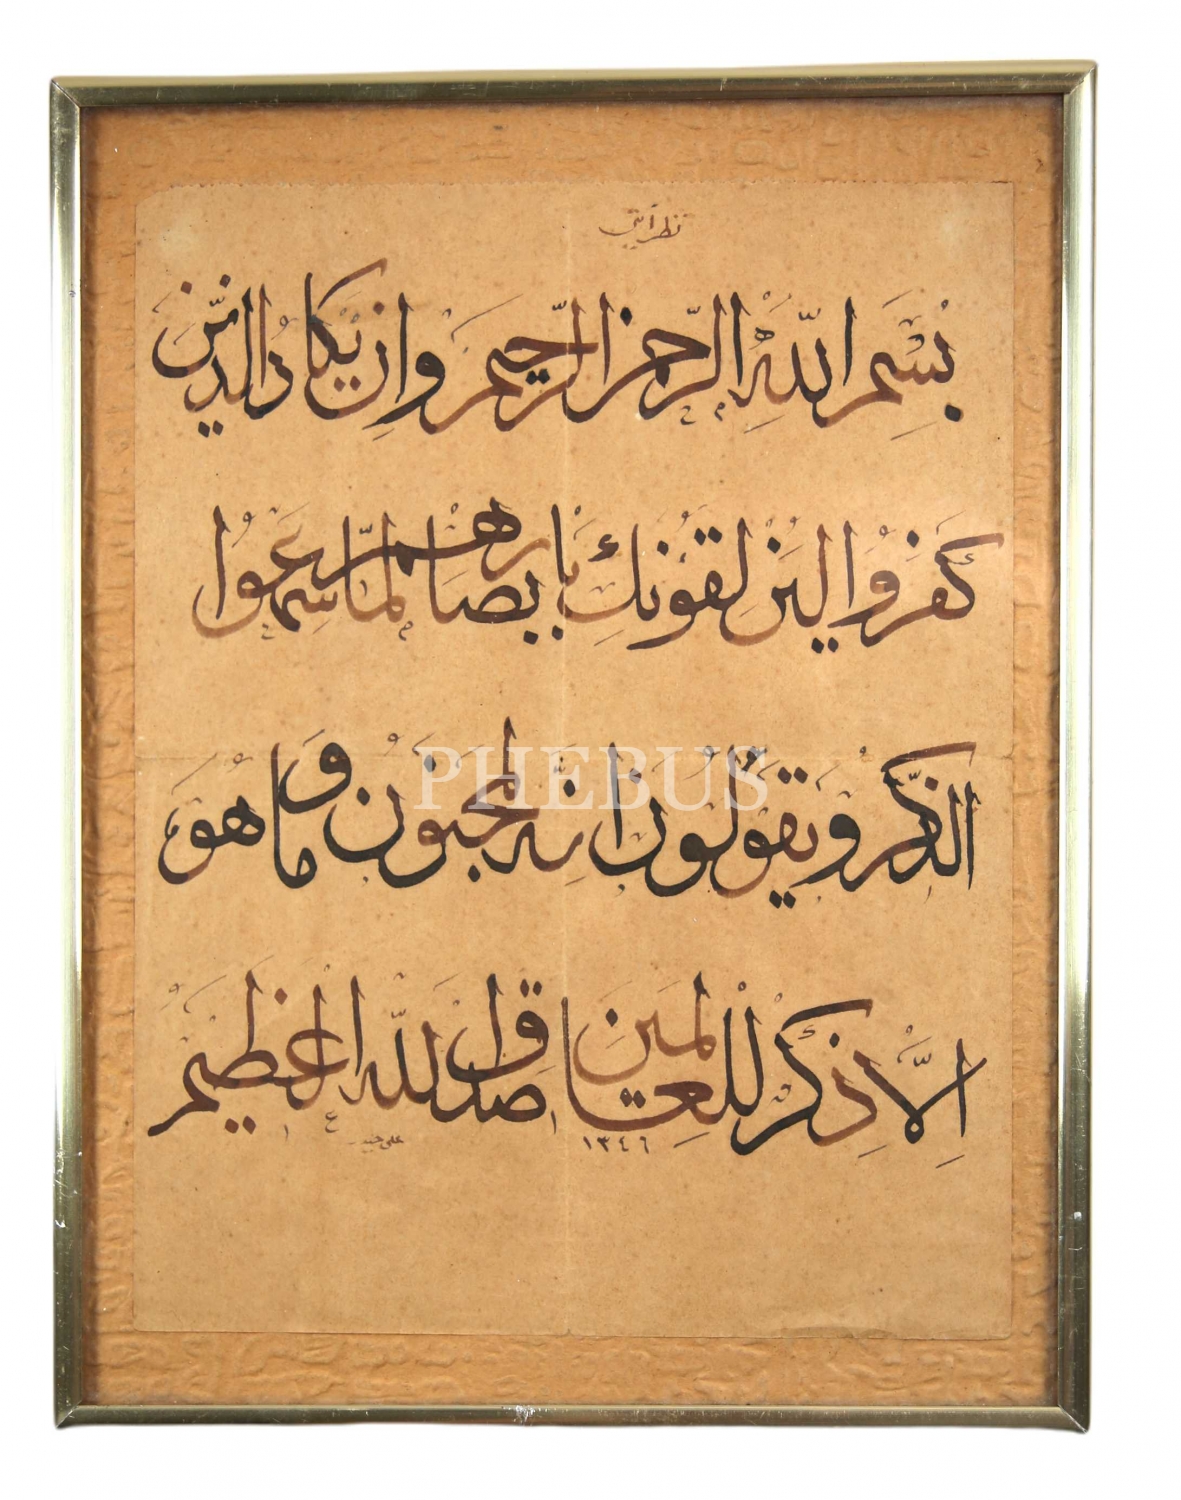 نظر آيتي
بِسْمِ اللّٰهِ الرَّحْمٰنِ الرَّحِيمِ وَاِنْ يَكَادُ الَّذِينَ
كَفَرُوا لَيُزْلِقُونَكَ بِاَبْصَارِهِمْ لَمَّا سَمِعُوا
الذِّكْرَ وَيَقُولُونَ اِنَّهُ لَمَجْنُونٌ وَمَا هُوَ
PHEBUS
اِلَّا ذِكْرٌ لِلْعَالَمِينَ صَدَقَ اللّٰهُ الْعَظِيمُ
١٣٤٦